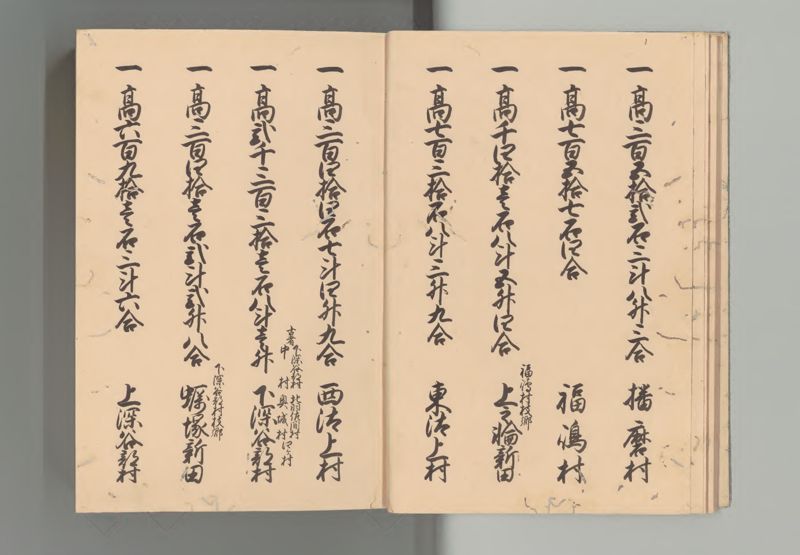 一 高三百五拾弐石三斗八升三合 播磨村
一 高七百五拾七石四合 福嶋村
一 高千四拾壱石八斗五升四合 福嶋村枝郷 上之輪新田
一 高七百三拾石八斗三升九合 東汰上村
一 高三百四拾四石七斗四升九合 西汰上村
一 高弐千三百三拾壱石八斗壱升 古者下深谷部村 北羽佐間村 中村 奥城村 四ヶ村 下深谷部村
一 高三百四拾壱石弐斗弐升八合 下深谷部村枝郷 蠣塚新田
一 高六百九拾壱石三斗六合 上深谷部村